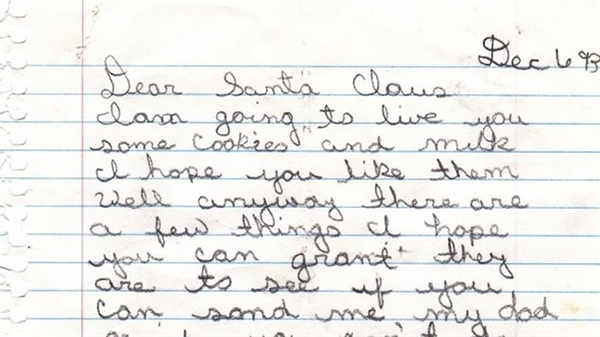 Dec 6 93
Dear Santa Claus
I am going to live you
some cookies and milk
I hope you like them
Well anyway there are
a few things I hope
you can grant they
are to see if you
can send me my dad